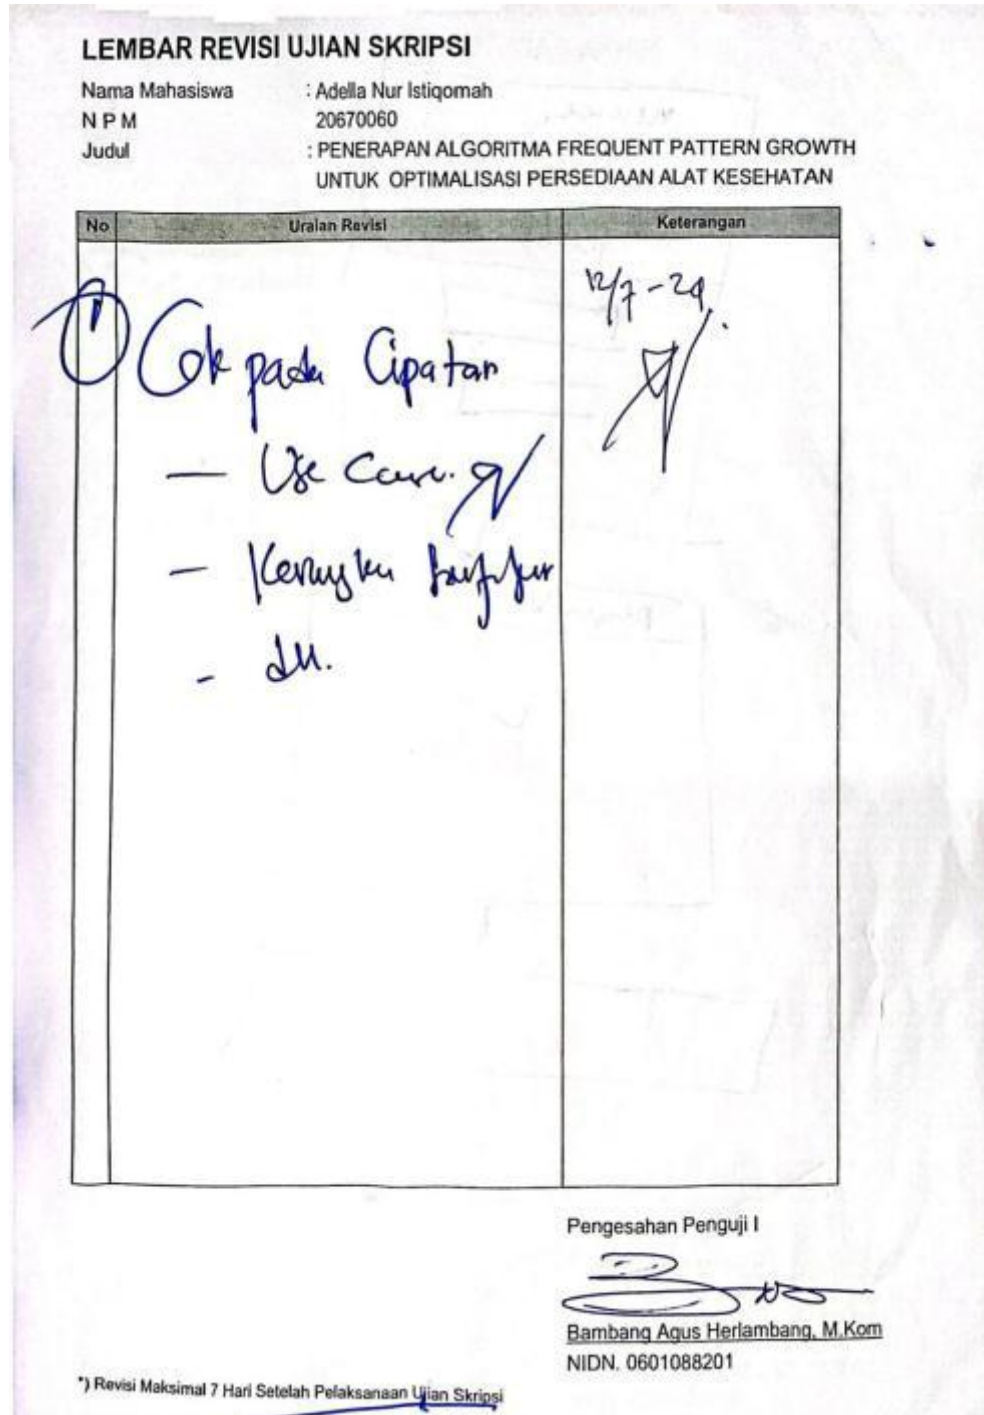 LEMBAR REVISI UJIAN SKRIPSI
Nama Mahasiswa : Adella Nur Istiqomah
N P M 20670060
Judul : PENERAPAN ALGORITMA FREQUENT PATTERN GROWTH
UNTUK OPTIMALISASI PERSEDIAAN ALAT KESEHATAN
No Uraian Revisi Keterangan
12/7-24.
1 Cek pada Cipatan
— Use Case.
— Kerangka
- dll.
Pengesahan Penguji I
Bambang Agus Herlambang, M.Kom
NIDN. 0601088201
*) Revisi Maksimal 7 Hari Setelah Pelaksanaan Ujian Skripsi